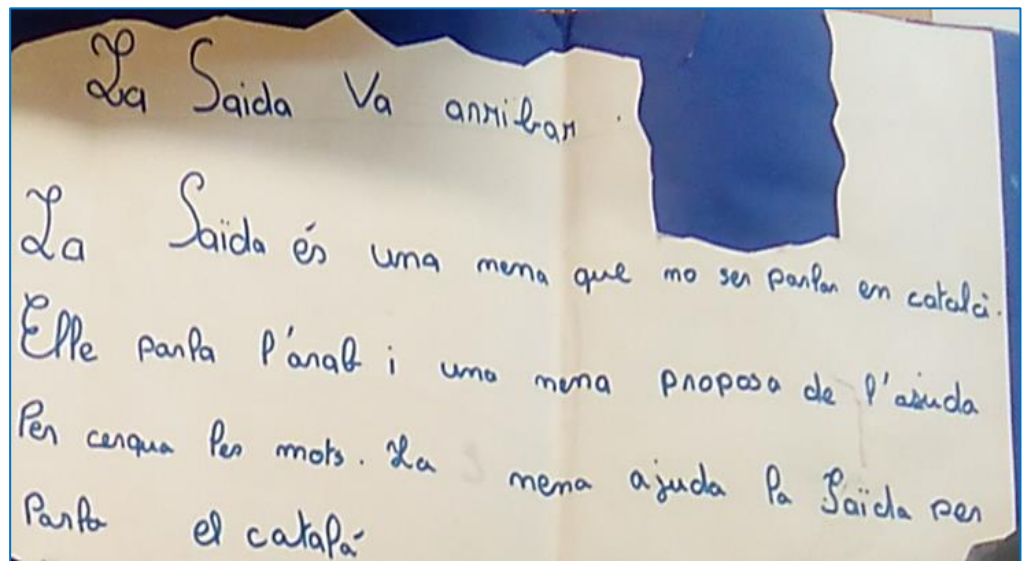 La Saida Va arribar.
La Saïda és una nena que no ser parlar en català.
Elle parla l'arab i una nena proposa de l'aiuda
Per cerqua les mots. La nena ajuda la Saïda per
Parla el catalá